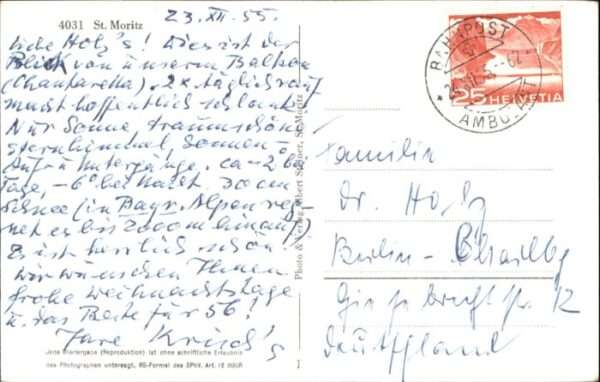 4031 St. Moritz
23. XII. 55.
Liebe Holz's! Dies ist der
Blick von unserm Balkon
(Chantarella). 2x täglich rauf
macht hoffentlich schlank!
Nur Sonne, traumschön
sternhimmel, Sonnen-
Auf- u. Untergänge. ca -2° bei
Tage, -6° bei Nacht. 30 cm
Schnee (in Bayr. Alpen reg-
net es bis 2000 m hinauf)
Es ist herrlich schön!
Wir wünschen Ihnen
frohe Weihnachtstage
u. das Beste für 56!
Ihre Krisch's
Jede Wiedergabe (Reproduktion) ist ohne schriftliche Erlaubnis
des Photographen untersagt, RS-Formel des SPhV. Art. 12 WOUR
Photo & Verlag Albert Steiner, St. Moritz
BAHNPOST
AMBULANT
25 HELVETIA
Familie
Dr. Holz
Berlin - Charlbg
Giesebrechtstr. 12
Deutschland